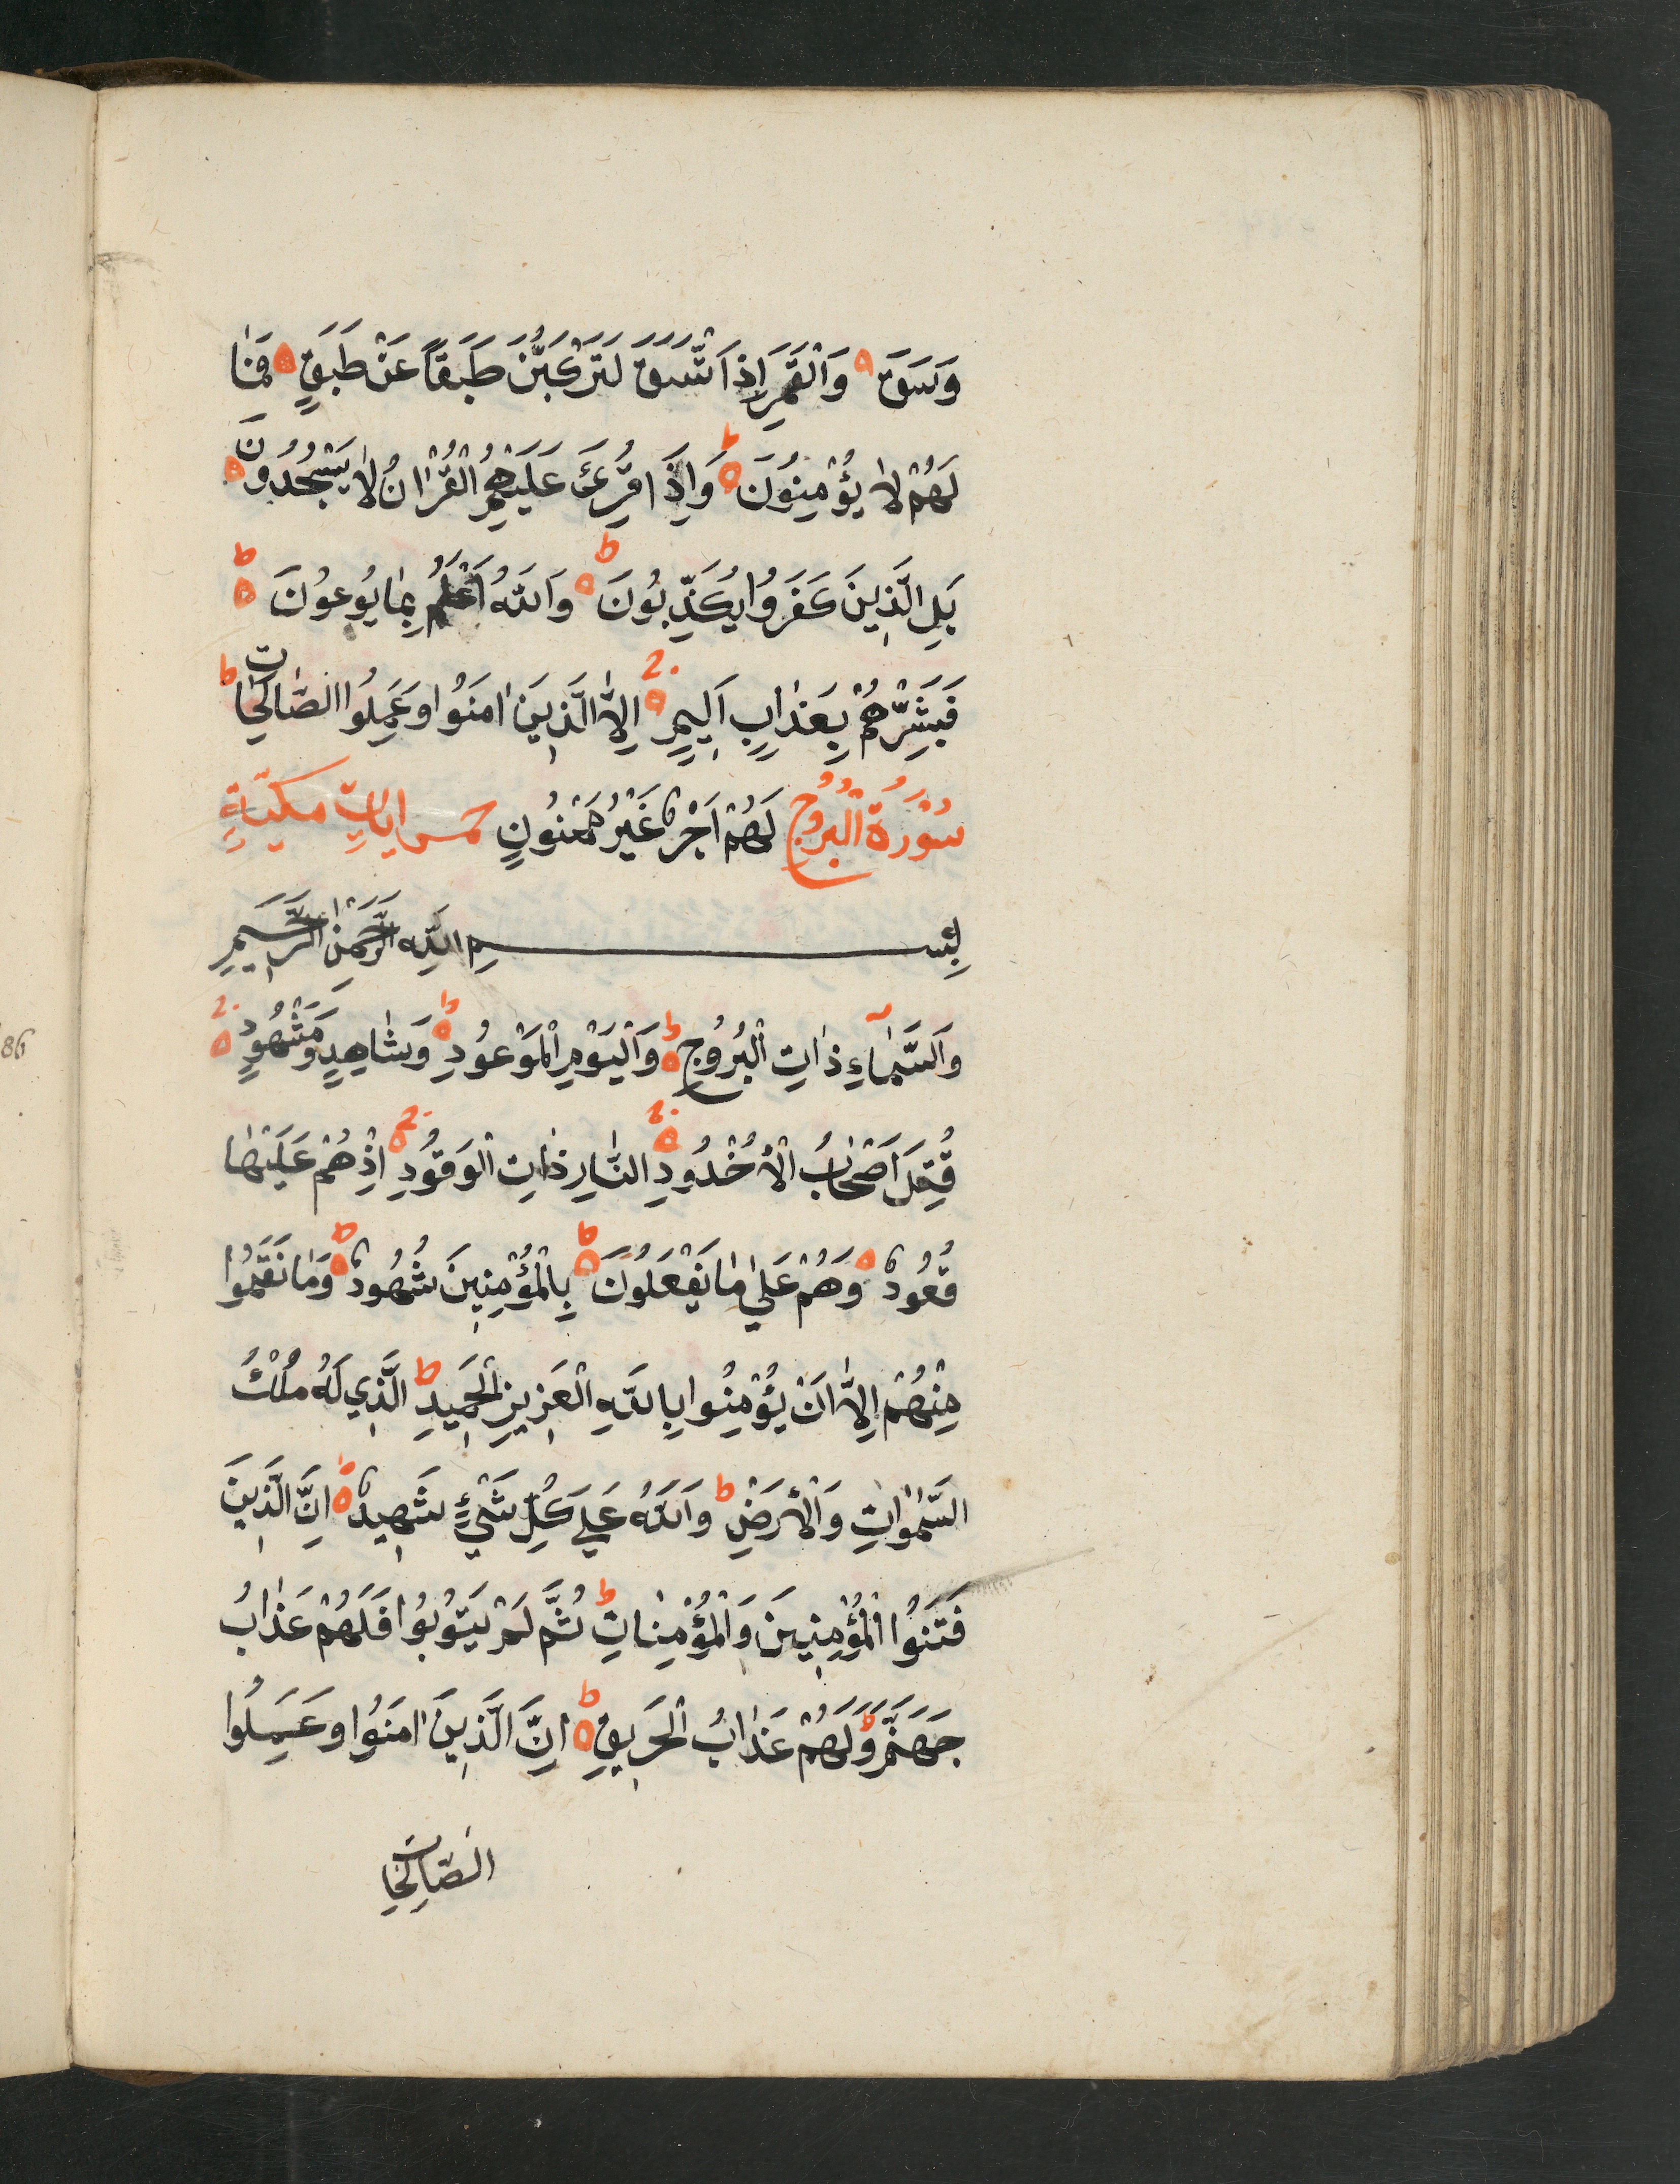 وَسَقَ ه وَالْقَمَرِ اِذَا اتَّسَقَ لَتَرْكَبُنَّ طَبَقًا عَنْ طَبَقٍ ه فَمَا
لَهُمْ لَا يُؤْمِنُونَ ه ط وَاِذَا قُرِئَ عَلَيْهِمُ الْقُرْاٰنُ لَا يَسْجُدُونَ ه
بَلِ الَّذِينَ كَفَرُوا يُكَذِّبُونَ ه ط وَاللّٰهُ اَعْلَمُ بِمَا يُوعُونَ ه ط
فَبَشِّرْهُمْ بِعَذَابٍ اَلِيمٍ ه اِلَّا الَّذِينَ اٰمَنُوا وَعَمِلُوا الصَّالِحَاتِ ط
سُوْرَةُ الْبُرُوجِ لَهُمْ اَجْرٌ غَيْرُ مَمْنُونٍ خمس ايات مكيّة
بِسْمِ اللّٰهِ الرَّحْمٰنِ الرَّحِيمِ
وَالسَّمَاءِ ذَاتِ الْبُرُوجِ ه ط وَالْيَوْمِ الْمَوْعُودِ ه ط وَشَاهِدٍ وَمَشْهُودٍ ه
قُتِلَ اَصْحَابُ الْاُخْدُودِ ه النَّارِ ذَاتِ الْوَقُودِ ه اِذْ هُمْ عَلَيْهَا
قُعُودٌ ه وَهُمْ عَلٰى مَا يَفْعَلُونَ ه ط بِالْمُؤْمِنِينَ شُهُودٌ ه ط وَمَا نَقَمُوا
مِنْهُمْ اِلَّا اَنْ يُؤْمِنُوا بِاللّٰهِ الْعَزِيزِ الْحَمِيدِ ط الَّذِي لَهُ مُلْكُ
السَّمٰوَاتِ وَالْاَرْضِ ط وَاللّٰهُ عَلٰى كُلِّ شَيْءٍ شَهِيدٌ ه ط اِنَّ الَّذِينَ
فَتَنُوا الْمُؤْمِنِينَ وَالْمُؤْمِنَاتِ ط ثُمَّ لَمْ يَتُوبُوا فَلَهُمْ عَذَابُ
جَهَنَّمَ وَلَهُمْ عَذَابُ الْحَرِيقِ ه ط اِنَّ الَّذِينَ اٰمَنُوا وَعَمِلُوا
الصَّالِحَاتِ
86